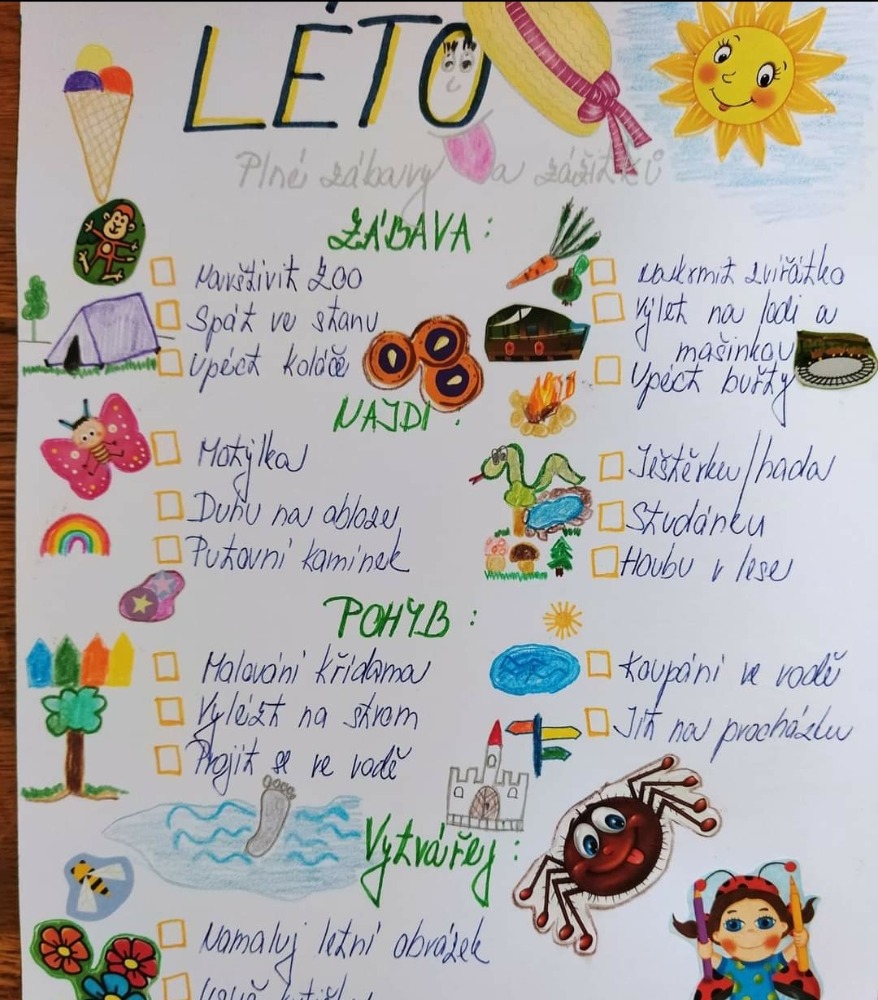 LÉTO
Plné zábavy a zážitků
ZÁBAVA:
Navštívit ZOO
Spát ve stanu
Upéct koláče
Nakrmit zvířátko
Výlet na lodi a
mašinkou
Upéct buřty
NAJDI:
Motýlka
Duhu na obloze
Putovní kamínek
Ještěrku/hada
Studánku
Houbu v lese
POHYB:
Malování křídama
Vylézt na strom
Projít se ve vodě
Koupání ve vodě
Jít na procházku
Vytvářej:
Namaluj letní obrázek